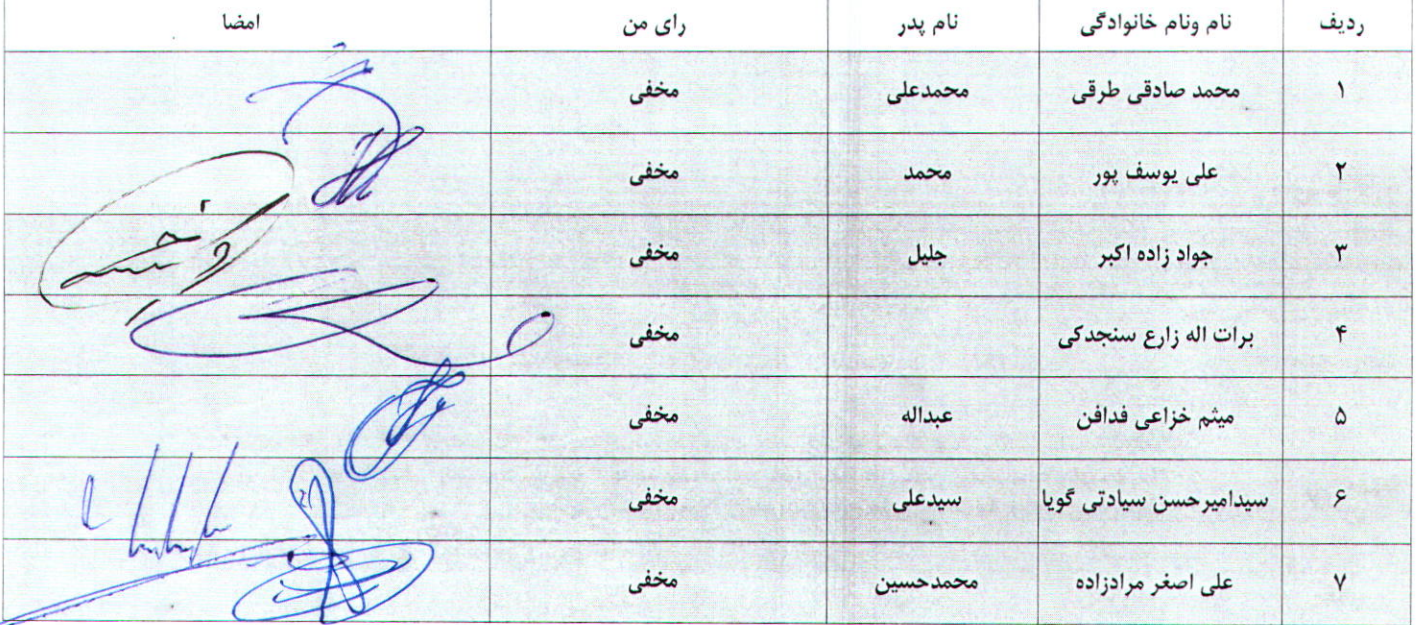 ردیف نام ونام خانوادگی نام پدر رای من امضا
۱ محمد صادقی طرقی محمدعلی مخفی
۲ علی یوسف پور محمد مخفی
۳ جواد زاده اکبر جلیل مخفی
۴ برات اله زارع سنجدکی مخفی
۵ میثم خزاعی فدافن عبداله مخفی
۶ سیدامیرحسن سیادتی گویا سیدعلی مخفی
۷ علی اصغر مرادزاده محمدحسین مخفی